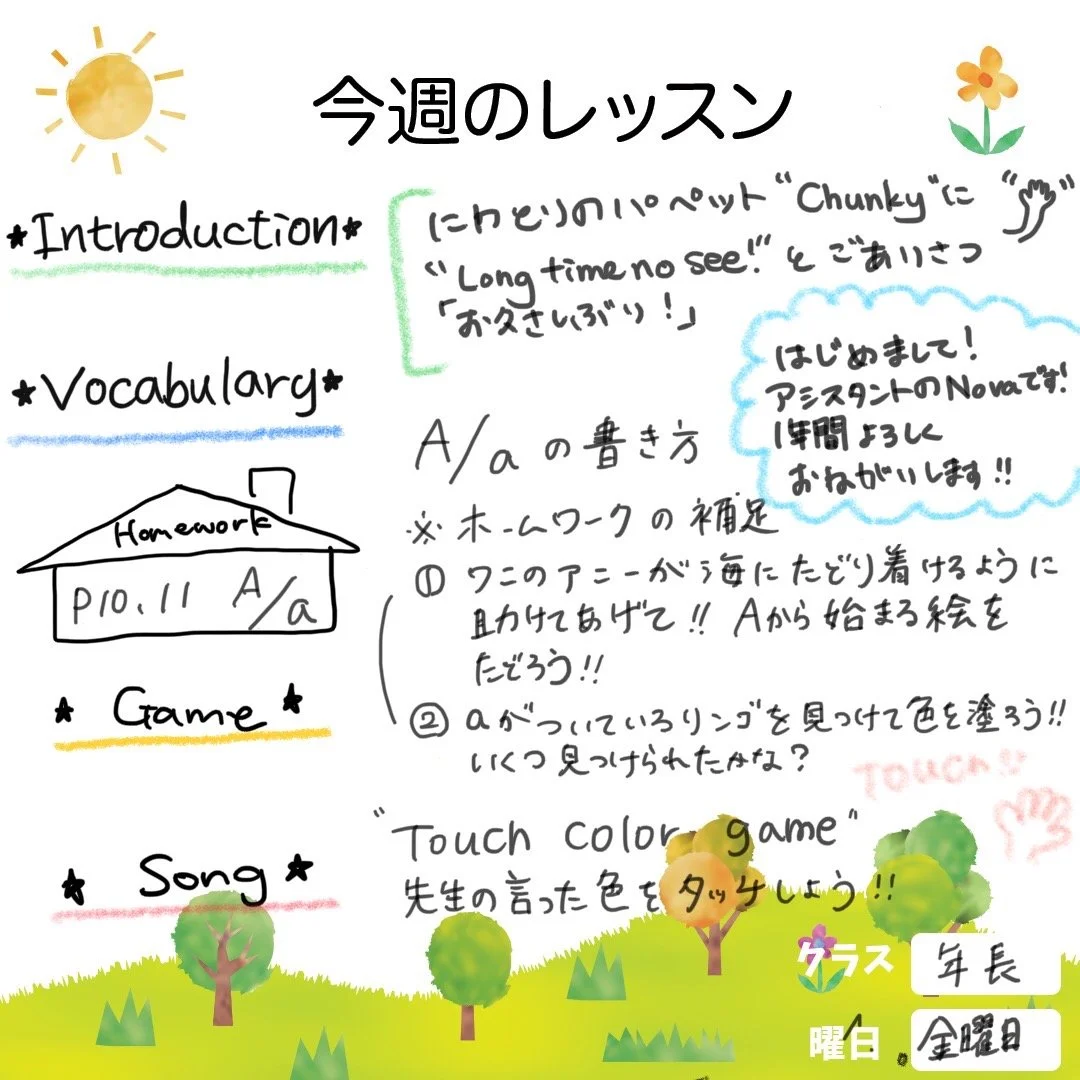 今週のレッスン
★Introduction★
にわとりのパペット"Chunky"に
"Long time no see!"とごあいさつ
「お久さしぶり!」
はじめまして!
アシスタントのNovaです!
1年間よろしく
おねがいします!!
★Vocabulary★
A/aの書き方
Homework
P10.11 A/a
※ホームワークの補足
① ワニのアニーが海にたどり着けるように
助けてあげて!! Aから始まる絵を
たどろう!!
② aがついているリンゴを見つけて色を塗ろう!!
いくつ見つけられたかな?
★Game★
Touch
"Touch color game"
先生の言った色をタッチしよう!!
★Song★
クラス 年長
曜日 金曜日